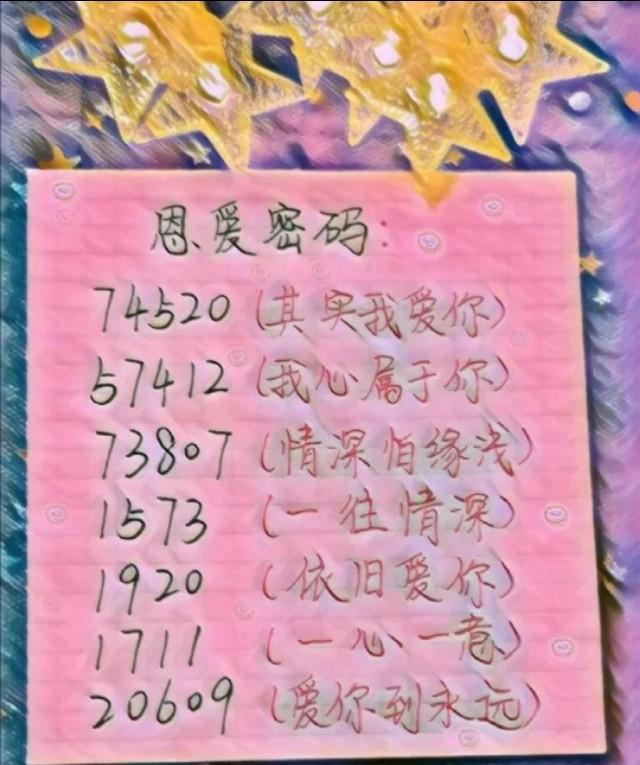 恩爱密码:
74520 (其实我爱你)
57412 (我心属于你)
73807 (情深怕缘浅)
1573 (一往情深)
1920 (依旧爱你)
1711 (一心一意)
20609 (爱你到永远)